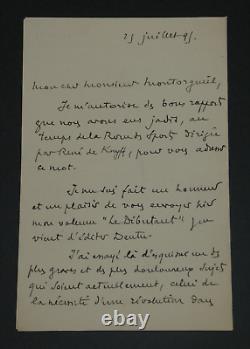 25 juillet 95.
Mon cher Monsieur Montorgueil,
Je m'autorise ds bons rapport
que nous avons eus jadis, au
temps de la Rev. ds Sport dirigée
par René de Knyff, pour vous adresser
ce mot.
Je me suis fait un honneur
et un plaisir de vous envoyer hier
mon volume "Le Débutant" que
vient d'éditer Dentu.
J'ai essayé là d'esquisser un ds
plus graves et ds plus douloureux sujets
qui soient actuellement, celui de
la nécessité d'une révolution dans
ebay